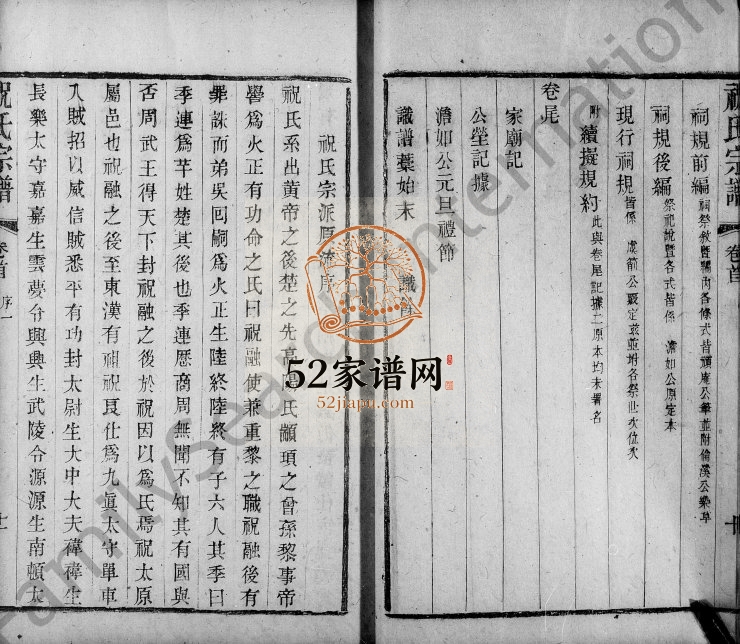 祠規前編 祠祭敘暨編內各條式皆頑庵公筆並附倫溪公樂章
祠規後編 祭祝說暨各式皆係 澹如公原定本
現行祠規 皆係 虔前公嚴定並附各祭世次位次
附 續擬規約 此與卷尾記據二原本均未署名
卷尾
家廟記
公塋記據
澹如公元旦禮節
識譜葉始末
祝氏宗譜 卷首
祝氏宗派原流序
祝氏系出黃帝之後楚之先高陽氏顓頊之曾孫黎事帝
嚳為火正有功命之氏曰祝融使兼重黎之職祝融後有
罪誅而弟吳回嗣為火正生陸終陸終有子六人其季曰
季連為芊姓楚其後也季連歷商周無聞不知其有國與
否周武王得天下封祝融之後於祝因以為氏焉祝太原
屬邑也祝融之後至東漢有祖祝良仕為九真太守單車
入賊招以威信賊悉平有功封太尉生大中大夫褘褘生
長樂太守嘉嘉生雲夢令興興生武陵令源源生南頓太
祝氏宗譜 卷首 序一
52家谱网
52jiapu.com
FamilySearch International